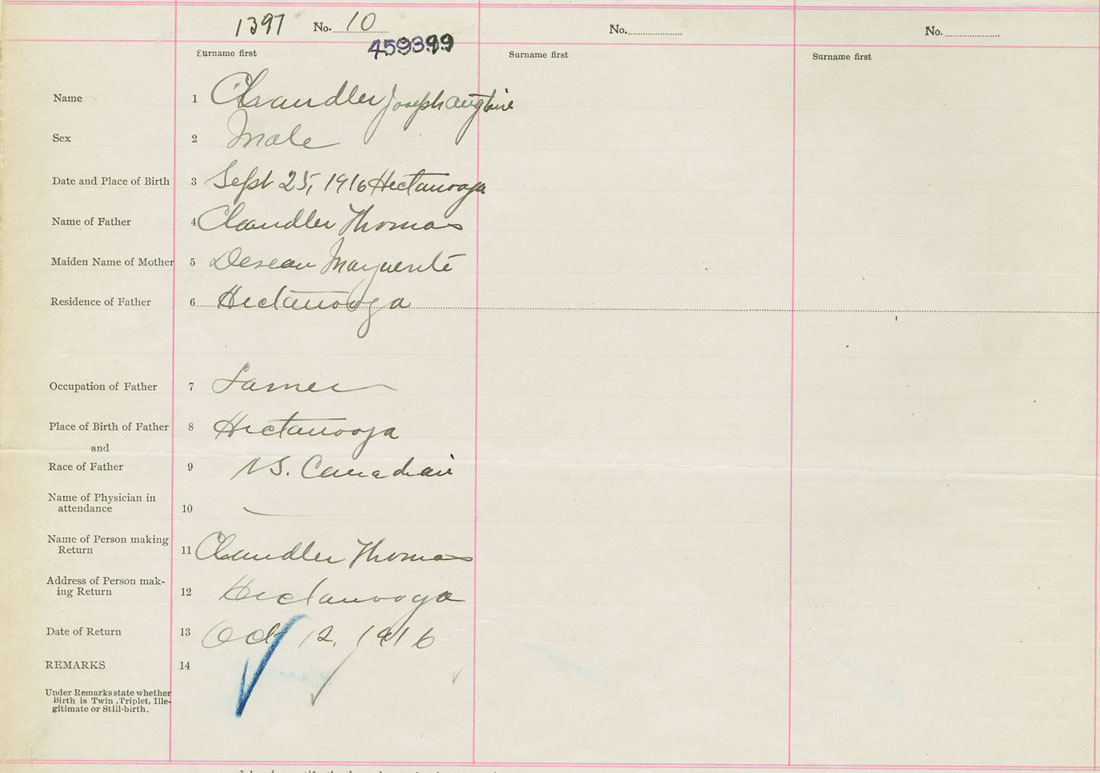 1397 No. 10 No. No.
459399
Surname first Surname first Surname first
Name 1 Chandler Joseph
Sex 2 Male
Date and Place of Birth 3 Sept 25, 1916 Hectanooga
Name of Father 4 Chandler Thomas
Maiden Name of Mother 5 Deseau Marguerite
Residence of Father 6 Hectanooga
Occupation of Father 7 Farmer
Place of Birth of Father 8 Hectanooga
and
Race of Father 9 NS. Canadian
Name of Physician in
attendance 10
Name of Person making
Return 11 Chandler Thomas
Address of Person mak-
ing Return 12 Hectanooga
Date of Return 13 Oct 12, 1916
REMARKS 14
Under Remarks state whether
Birth is Twin, Triplet, Ille-
gitimate or Still-birth.